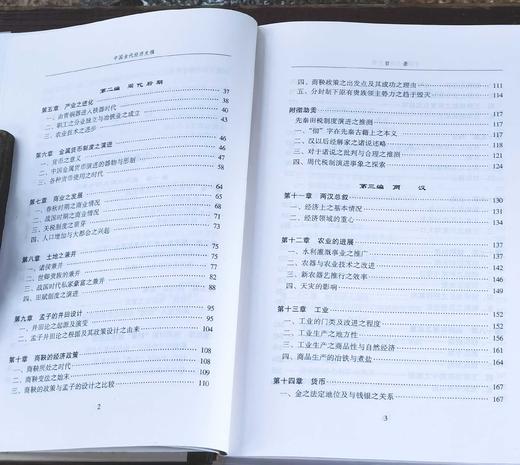 中国古代经济史稿
第二编 周代后期 37
第五章 产业之进化 38
一、由青铜器进入铁器时代 38
二、职工之分业独立与冶铁业之成立 40
三、农业技术之进步 45
第六章 金属货币制度之演进 48
一、货币之意义
二、中国金属货币演进的器物与形制
三、各种货币使用之时代 58
第七章 商业之发展 64
一、春秋时期之商业情况
二、战国时期之商业情况 68
三、关税制度之萌芽
四、人口增加与大都会之兴起
第八章 土地之兼并 75
一、诸侯兼并 75
二、世卿贵族的兼并
三、战国时代私家豪富之兼并
四、田赋制度之演进
第九章 孟子的井田设计 95
一、井田论之起源及演变 95
二、孟子井田论之根据及其政策设计之由来 104
第十章 商鞅的经济政策 108
一、商鞅所处之时代 108
二、商鞅变法之始末 109
三、商鞅的政策与孟子的设计之比较 110
2
目 录
四、商鞅政策之出发点及其成功之理由 111
五、分封制下原有贵族领主势力之趋于毁灭 114
附缀勋羡
先秦田税制度演进之推测 117
一、“彻”字在先秦古籍上之本义 117
二、汉以后经解家之诸说述略
三、对于诸说之批判与合理之推测
四、周代税制演进事象之探索
第三编 两 汉
第十一章 两汉总叙 130
一、经济上之基本情况 130
二、经济领域的重心
第十二章 农业的进展
一、水利灌溉事业之推广
二、农器与农业技术之改进
三、新农器艺推行之效率
四、天灾的影响
第十三章 工业 152
一、工业的门类及改进之程度 152
二、工业生产之地方性
三、工业生产之商品性与自然经济
四、商品生产的冶铁与煮盐
第十四章 货币 167
一、金之法定地位及与钱银之关系 167
3